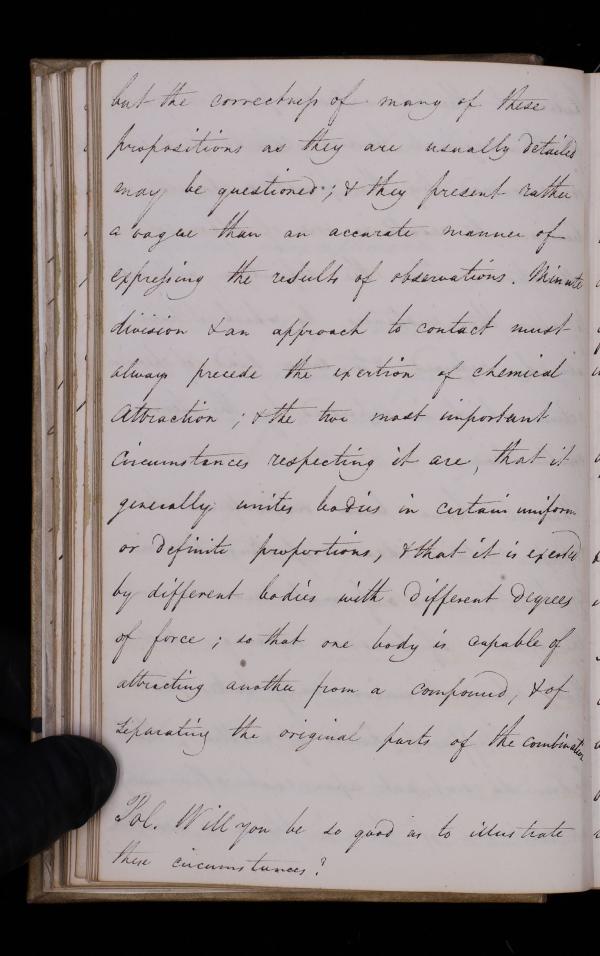 but the correctness of many of these
propositions as they are usually detailed
may be questioned; & they present rather
a vague than an accurate manner of
expressing the results of observations. Minute
division & an approach to contact must
always precede the exertion of chemical
attraction; & the two most important
circumstances respecting it are, that it
generally unites bodies in certain uniform
or definite proportions, & that it is exerted
by different bodies with different degrees
of force; so that one body is capable of
attracting another from a compound, & of
separating the original parts of the combination
Pol. Will you be so good as to illustrate
these circumstances?